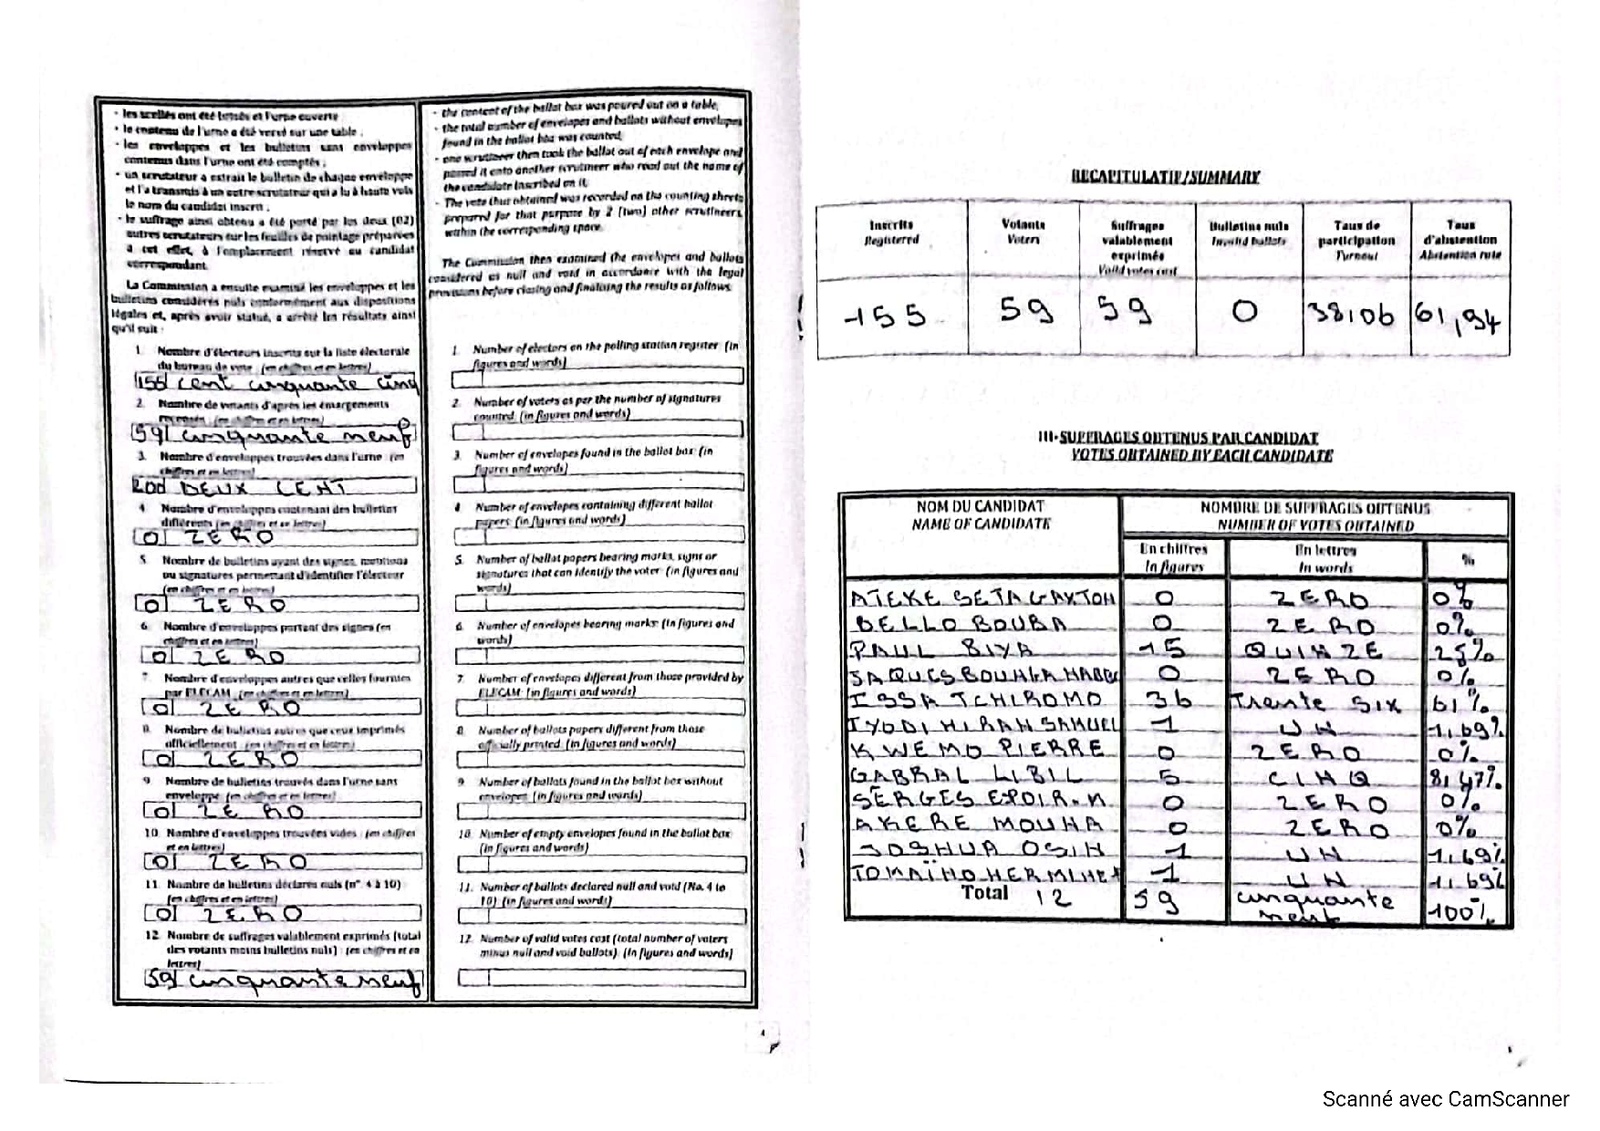 - les scellés ont été brisés et l'urne ouverte
- le contenu de l'urne a été versé sur une table ;
- les enveloppes et les bulletins sans enveloppes
contenus dans l'urne ont été comptés ;
- un scrutateur a extrait le bulletin de chaque enveloppe
et l'a transmis à un autre scrutateur qui a lu à haute voix
le nom du candidat inscrit ;
- le suffrage ainsi obtenu a été porté par les deux (02)
autres scrutateurs sur les feuilles de pointage préparées
à cet effet, à l'emplacement réservé au candidat
correspondant.
La Commission a ensuite examiné les enveloppes et les
bulletins considérés nuls conformément aux dispositions
légales et, après avoir statué, a arrêté les résultats ainsi
qu'il suit :
1. Nombre d'électeurs inscrits sur la liste électorale
du bureau de vote : (en chiffres et en lettres)
155 cent cinquante cinq
2. Nombre de votants d'après les émargements
(en chiffres et en lettres)
59 cinquante neuf
3. Nombre d'enveloppes trouvées dans l'urne : (en
chiffres et en lettres)
200 DEUX CENT
4. Nombre d'enveloppes contenant des bulletins
différents (en chiffres et en lettres)
0 ZERO
5. Nombre de bulletins ayant des signes, mentions
ou signatures permettant d'identifier l'électeur
(en chiffres et en lettres)
0 ZERO
6. Nombre d'enveloppes portant des signes (en
chiffres et en lettres)
0 ZERO
7. Nombre d'enveloppes autres que celles fournies
par ELECAM : (en chiffres et en lettres)
0 ZERO
8. Nombre de bulletins autres que ceux imprimés
officiellement : (en chiffres et en lettres)
0 ZERO
9. Nombre de bulletins trouvés dans l'urne sans
enveloppe : (en chiffres et en lettres)
0 ZERO
10. Nombre d'enveloppes trouvées vides : (en chiffres
et en lettres)
0 ZERO
11. Nombre de bulletins déclarés nuls (n° 4 à 10)
(en chiffres et en lettres)
0 ZERO
12. Nombre de suffrages valablement exprimés (total
des votants moins bulletins nuls) : (en chiffres et en
lettres)
59 cinquante neuf
- the content of the ballot box was poured out on a table,
- the total number of envelopes and ballots without envelopes
found in the ballot box was counted;
- one scrutineer then took the ballot out of each envelope and
passed it onto another scrutineer who read out the name of
the candidate inscribed on it;
- The vote thus obtained was recorded on the counting sheets
prepared for that purpose by 2 (two) other scrutineers
within the corresponding space.
The Commission then examined the envelopes and ballots
considered as null and void in accordance with the legal
provisions before closing and finalising the results as follows:
1. Number of electors on the polling station register: (in
figures and words)
2. Number of voters as per the number of signatures
counted: (in figures and words)
3. Number of envelopes found in the ballot box: (in
figures and words)
4 Number of envelopes containing different ballot
papers: (in figures and words)
5. Number of ballot papers bearing marks, signs or
signatures that can identify the voter: (in figures and
words)
6. Number of envelopes bearing marks: (in figures and
words)
7. Number of envelopes different from those provided by
ELECAM: (in figures and words)
8. Number of ballots papers different from those
officially printed: (in figures and words)
9. Number of ballots found in the ballot box without
envelopes: (in figures and words)
10. Number of empty envelopes found in the ballot box:
(in figures and words)
11. Number of ballots declared null and void (No. 4 to
10): (in figures and words)
12. Number of valid votes cast (total number of voters
minus null and void ballots): (in figures and words)
4
RECAPITULATIF/SUMMARY
Inscrits Registered | Votants Voters | Suffrages valablement exprimés Valid votes cast | Bulletins nuls Invalid ballots | Taux de participation Turnout | Taux d'abstention Abstention rate
155 59 59 0 38,06 61,94
III-SUFFRAGES OBTENUS PAR CANDIDAT
VOTES OBTAINED BY EACH CANDIDATE
NOM DU CANDIDAT NOMBRE DE SUFFRAGES OBTENUS
NAME OF CANDIDATE NUMBER OF VOTES OBTAINED
En chiffres En lettres %
In figures In words
ATEKE SETA GAXTON 0 ZERO 0%
BELLO BOUBA 0 ZERO 0%
PAUL BIYA 15 QUINZE 25%
JAQUES BOUHGA 0 ZERO 0%
ISSA TCHIROMO 36 Trente six 61%
IYODI HIRAN SAMUEL 1 UN 1,69%
KWEMO PIERRE 0 ZERO 0%
GABRAL LIBIL 5 CINQ 8,47%
SERGES ESPOIR.M 0 ZERO 0%
AKERE MOUNA 0 ZERO 0%
JOSHUA OSIH 1 UN 1,69%
TOMAÏNO 1 UN 1,69%
Total 12 59 cinquante neuf 100%
Scanné avec CamScanner